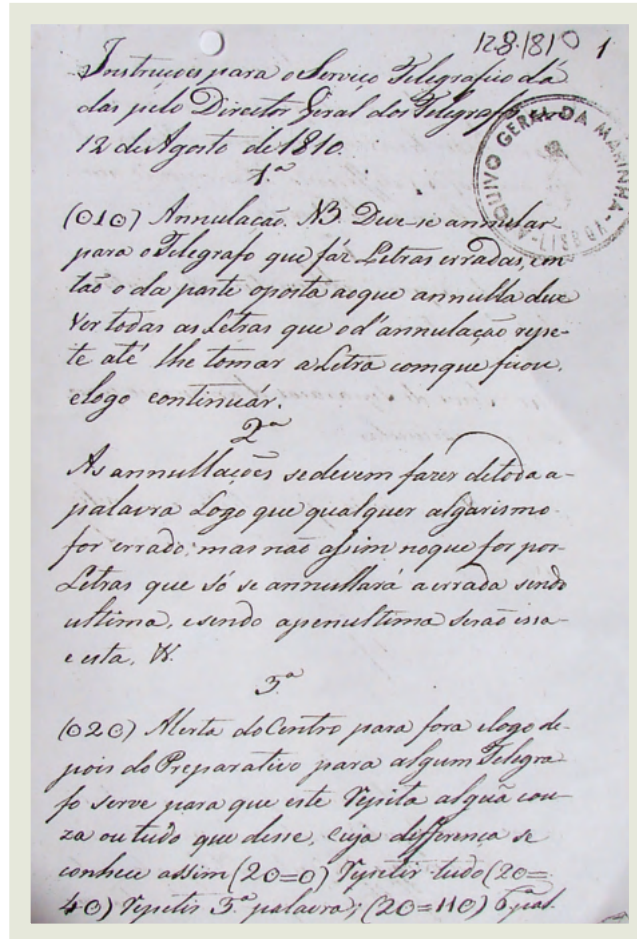 128.1810 1
Instrucções para o Serviço Telegrafico da
das pelo Director Geral dos Telegrafos em
12 de Agosto de 1810.
ARQUIVO GERAL DA MARINHA
1.ª
(010) Annulação. NB. Deve-se annular
para o Telegrafo que fáz Letras erradas, em
tão o da parte oposta aoque annulla deve
Ver todas as Letras que o d'annulação repe-
te até lhe tomar a Letra comque ficou,
elogo continuár.
2.ª
As annullações sedevem fazer detoda a
palavra Logo que qualquer algarismo
for errado; mas não assim noque for por
Letras que só se annullará aerrada sendo
ultima, esendo apenultima serão essa
e esta, V.
3.ª
(020) Alerta do Centro para fora elogo de-
pois do Preparativo para algum Telegra
fo serve para que este Repita alguã cou-
za ou tudo que desse, cuja differença se
conhece assim (20=0) Repetir tudo (20=
40) Repetir 3.ª palavra; (20=110) 6.ª pal.